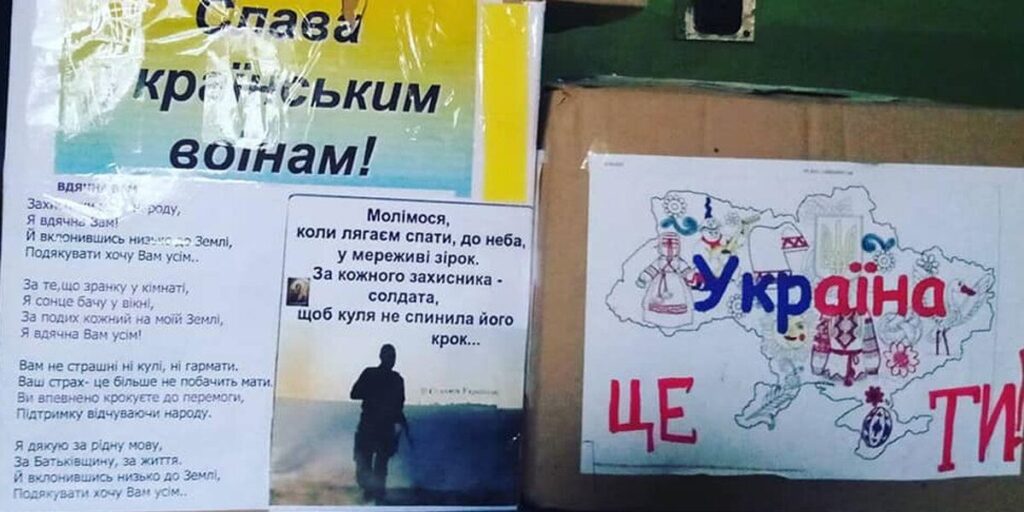 Слава
країнським
воїнам!
ВДЯЧНА ВАМ
народу,
Я вдячна Вам!
Й вклонившись низько до Землі,
Подякувати хочу Вам усім..
За те,що зранку у кімнаті,
Я сонце бачу у вікні,
За подих кожний на моїй Землі,
Я вдячна Вам усім!
Вам не страшні ні кулі, ні гармати.
Ваш страх- це більше не побачить мати.
Ви впевнено крокуєте до перемоги,
Підтримку відчуваючи народу.
Я дякую за рідну мову,
За Батьківщину, за життя.
Й вклонившись низько до Землі,
Подякувати хочу Вам усім..
Молімося,
коли лягаєм спати, до неба,
у мереживі зірок.
За кожного захисника -
солдата,
щоб куля не спинила його
крок...
Україна
ЦЕ ТИ!